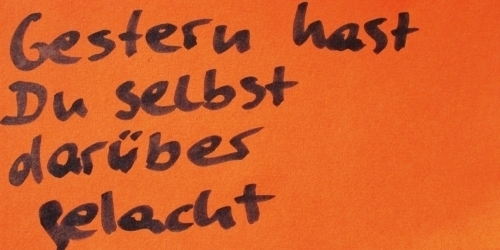 Gestern hast
Du selbst
darüber
gelacht